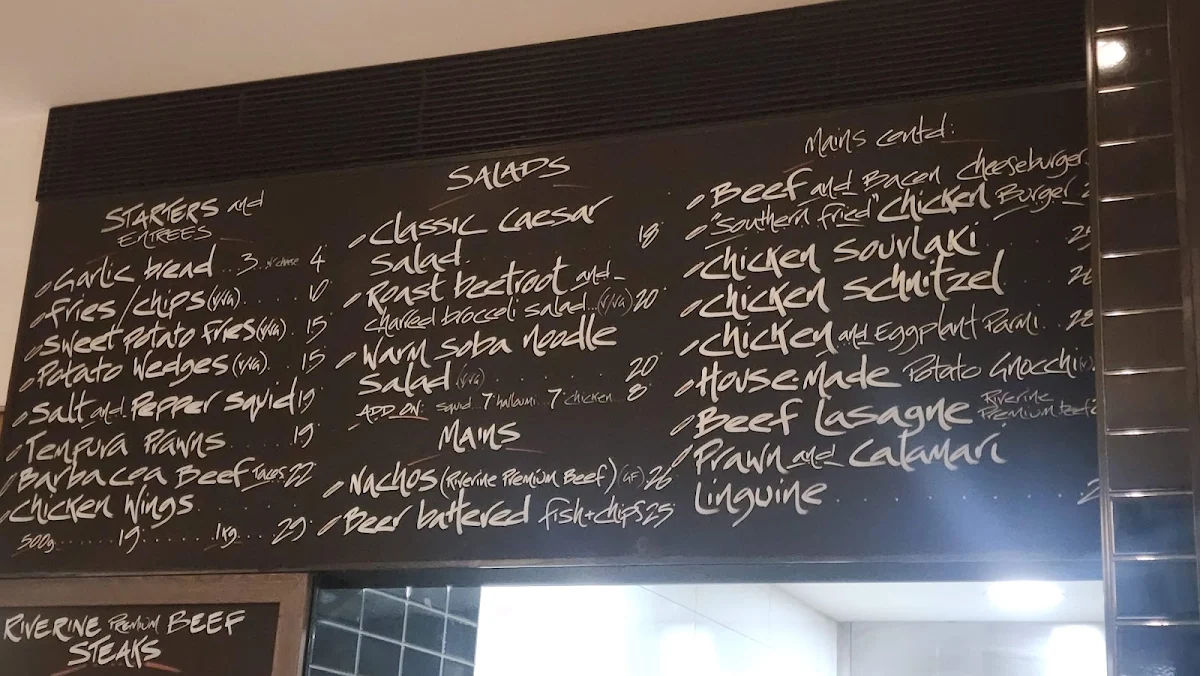 STARTERS and
ENTREES
Garlic bread 3 w/ cheese 4
Fries/chips (v/va) 10
Sweet Potato Fries (v/va) 15
Potato Wedges (v/va) 15
Salt and Pepper Squid 19
Tempura Prawns 19
Barbacoa Beef Tacos 22
Chicken Wings
500g 19 1kg 29
SALADS
Classic Caesar
Salad 18
Roast beetroot and
charred broccoli salad (v/va) 20
Warm Soba Noodle
Salad (v/va) 20
ADD ON: squid 7 halloumi 7 chicken 8
MAINS
Nachos (Riverine Premium Beef) (GF) 26
Beer battered fish + chips 25
Mains contd:
Beef and Bacon Cheeseburger
"Southern fried" Chicken Burger
Chicken Souvlaki
Chicken Schnitzel 26
Chicken and Eggplant Parmi 28
House Made Potato Gnocchi
Beef Lasagne Riverine
Premium beef
Prawn and Calamari
Linguine
RIVERINE PREMIUM BEEF
STEAKS